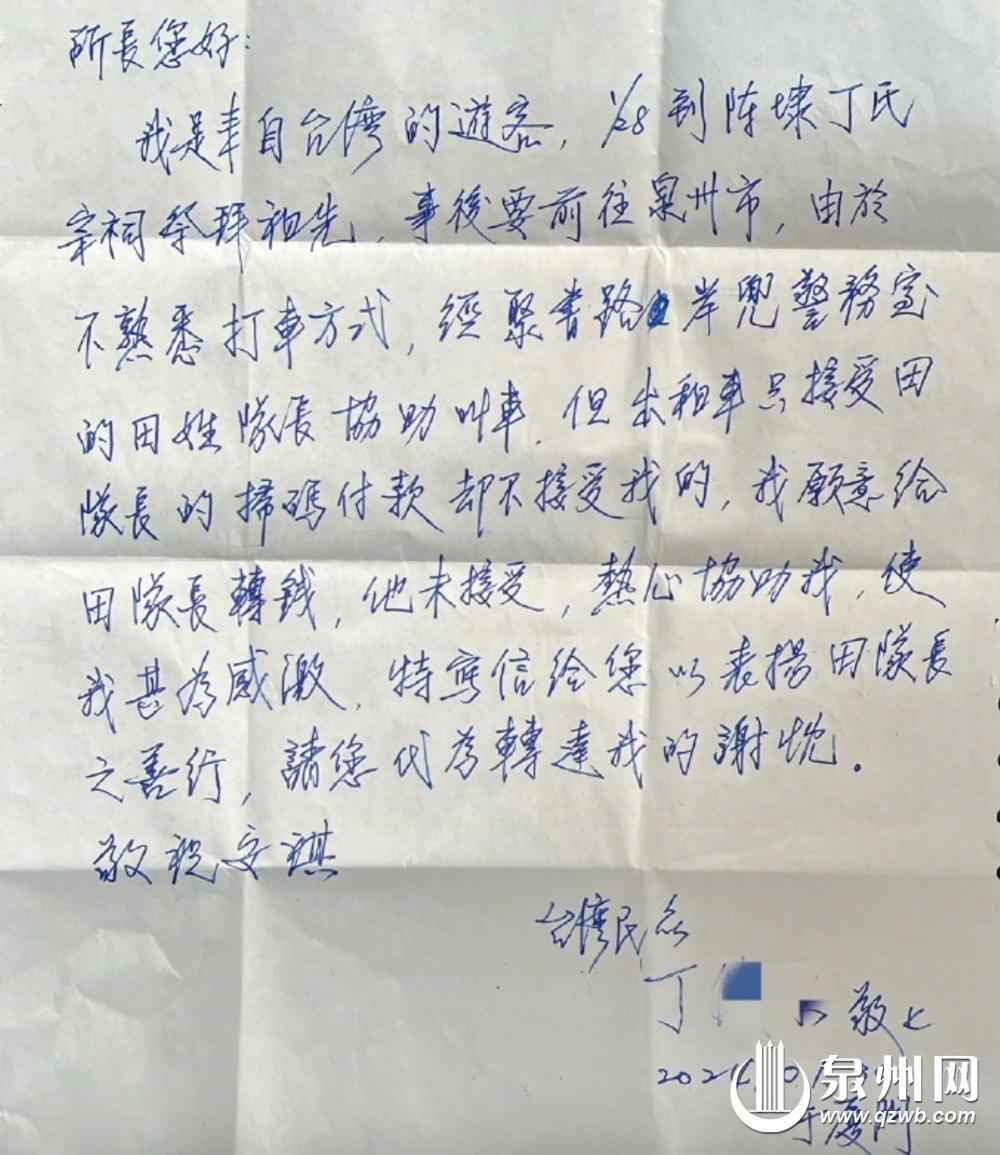 所長您好：
我是來自台灣的遊客，1/28到陈埭丁氏
宗祠祭拜祖先，事後要前往泉州市，由於
不熟悉打車方式，經聚書路岸兜警務室
的田姓隊長協助叫車，但出租車只接受田
隊長的掃碼付款却不接受我的，我願意給
田隊長轉錢，他未接受，熱心協助我，使
我甚為感激，特寫信給您以表揚田隊長
之善行，請您代為轉達我的謝忱。
敬祝安祺
台灣民众
丁 敬上
202
于廈門
泉州网
www.qzwb.com